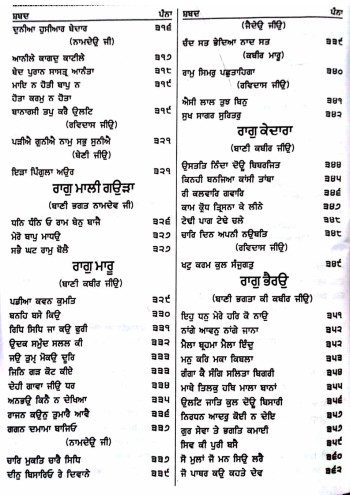 ਸ਼ਬਦ ਪੰਨਾ
ਦੁਨੀਆ ਹੁਸੀਆਰ ਬੇਦਾਰ ੩੧੬
(ਨਾਮਦੇਉ ਜੀ)
ਆਨੀਲੇ ਕਾਗਦੁ ਕਾਟੀਲੇ ੩੧੭
ਬੇਦ ਪੁਰਾਨ ਸਾਸਤ੍ਰ ਆਨੰਤਾ ੩੧੮
ਮਾਇ ਨ ਹੋਤੀ ਬਾਪੁ ਨ
ਹੋਤਾ ਕਰਮੁ ਨ ਹੋਤਾ ੩੧੯
ਬਾਨਾਰਸੀ ਤਪੁ ਕਰੈ ਉਲਟਿ ੩੧੯
(ਰਵਿਦਾਸ ਜੀਉ)
ਪੜੀਐ ਗੁਨੀਐ ਨਾਮੁ ਸਭੁ ਸੁਨੀਐ ੩੨੧
(ਬੇਣੀ ਜੀਉ)
ਇੜਾ ਪਿੰਗੁਲਾ ਅਉਰ ੩੨੧
ਰਾਗੁ ਮਾਲੀ ਗਉੜਾ
(ਬਾਣੀ ਭਗਤ ਨਾਮਦੇਵ ਜੀ)
ਧਨਿ ਧੰਨਿ ਓ ਰਾਮ ਬੇਨੁ ਬਾਜੈ ੩੨੬
ਮੇਰੋ ਬਾਪੁ ਮਾਧਉ ੩੨੭
ਸਭੈ ਘਟ ਰਾਮੁ ਬੋਲੈ ੩੨੭
ਰਾਗੁ ਮਾਰੂ
(ਬਾਣੀ ਕਬੀਰ ਜੀਉ)
ਪਡੀਆ ਕਵਨ ਕੁਮਤਿ ੩੨੯
ਬਨਹਿ ਬਸੇ ਕਿਉ ੩੩੦
ਰਿਧਿ ਸਿਧਿ ਜਾ ਕਉ ਫੁਰੀ ੩੩੧
ਉਦਕ ਸਮੁੰਦ ਸਲਲ ਕੀ ੩੩੨
ਜਉ ਤੁਮ੍ਹ ਮੋਕਉ ਦੂਰਿ ੩੩੩
ਜਿਨਿ ਗੜ ਕੋਟ ਕੀਏ ੩੩੪
ਦੇਹੀ ਗਾਵਾ ਜੀਉ ਧਰ ੩੩੪
ਅਨਭਉ ਕਿਨੈ ਨ ਦੇਖਿਆ ੩੩੫
ਰਾਜਨ ਕਉਨੁ ਤੁਮਾਰੈ ਆਵੈ ੩੩੬
ਗਗਨ ਦਮਾਮਾ ਬਾਜਿਓ ੩੩੭
(ਨਾਮਦੇਉ ਜੀ)
ਚਾਰਿ ਮੁਕਤਿ ਚਾਰੈ ਸਿਧਿ ੩੩੭
ਦੀਨੁ ਬਿਸਾਰਿਓ ਰੇ ਦਿਵਾਨੇ ੩੩੯
ਸ਼ਬਦ ਪੰਨਾ
(ਜੈਦੇਉ ਜੀਉ)
ਚੰਦ ਸਤ ਭੇਦਿਆ ਨਾਦ ਸਤ ੩੩੯
(ਕਬੀਰ ਮਾਰੂ)
ਰਾਮੁ ਸਿਮਰੁ ਪਛੁਤਾਹਿਗਾ ੩੪੦
(ਰਵਿਦਾਸ ਜੀਉ)
ਐਸੀ ਲਾਲ ਤੁਝ ਬਿਨੁ ੩੪੧
ਸੁਖ ਸਾਗਰ ਸੁਰਿਤਰੁ ੩੪੨
ਰਾਗੁ ਕੇਦਾਰਾ
(ਬਾਣੀ ਕਬੀਰ ਜੀਉ)
ਉਸਤਤਿ ਨਿੰਦਾ ਦੋਊ ਬਿਬਰਜਿਤ ੩੪੪
ਕਿਨਹੀ ਬਨਜਿਆ ਕਾਂਸੀ ਤਾਂਬਾ ੩੪੫
ਰੀ ਕਲਵਾਰਿ ਗਵਾਰਿ ੩੪੬
ਕਾਮ ਕ੍ਰੋਧ ਤ੍ਰਿਸਨਾ ਕੇ ਲੀਨੇ ੩੪੭
ਟੇਢੀ ਪਾਗ ਟੇਢੇ ਚਲੇ ੩੪੮
ਚਾਰਿ ਦਿਨ ਅਪਨੀ ਨਉਬਤਿ ੩੪੮
(ਰਵਿਦਾਸ ਜੀਉ)
ਖਟੁ ਕਰਮ ਕੁਲ ਸੰਜੁਗਤੁ ੩੪੯
ਰਾਗੁ ਭੈਰਉ
(ਬਾਣੀ ਭਗਤਾ ਕੀ ਕਬੀਰ ਜੀਉ)
ਇਹੁ ਧਨੁ ਮੇਰੇ ਹਰਿ ਕੋ ਨਾਉ ੩੫੧
ਨਾਂਗੇ ਆਵਨੁ ਨਾਂਗੇ ਜਾਨਾ ੩੫੨
ਮੈਲਾ ਬ੍ਰਹਮਾ ਮੈਲਾ ਇੰਦੁ ੩੫੨
ਮਨੁ ਕਰਿ ਮਕਾ ਕਿਬਲਾ ੩੫੩
ਗੰਗਾ ਕੈ ਸੰਗਿ ਸਲਿਤਾ ਬਿਗਰੀ ੩੫੪
ਮਾਥੇ ਤਿਲਕੁ ਹਥਿ ਮਾਲਾ ਬਾਨਾਂ ੩੫੫
ਉਲਟਿ ਜਾਤਿ ਕੁਲ ਦੋਊ ਬਿਸਾਰੀ ੩੫੬
ਨਿਰਧਨ ਆਦਰੁ ਕੋਈ ਨ ਦੇਇ ੩੫੭
ਗੁਰ ਸੇਵਾ ਤੇ ਭਗਤਿ ਕਮਾਈ ੩੫੭
ਸਿਵ ਕੀ ਪੁਰੀ ਬਸੈ ੩੫੯
ਸੋ ਮੁਲਾਂ ਜੋ ਮਨ ਸਿਉ ਲਰੈ ੩੬੦
ਜੋ ਪਾਥਰ ਕਉ ਕਹਤੇ ਦੇਵ ੩੬੨